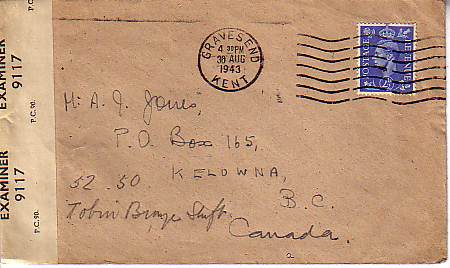 EXAMINER
9117
P.C. 90.
EXAMINER
9117
P.C. 90.
GRAVESEND
4 30PM
30 AUG
1943
KENT
POSTAGE
REVENUE
2½
A. J. Jones,
P.O. Box 165,
KELOWNA,
B.C.
Canada.
52.50
Tobin